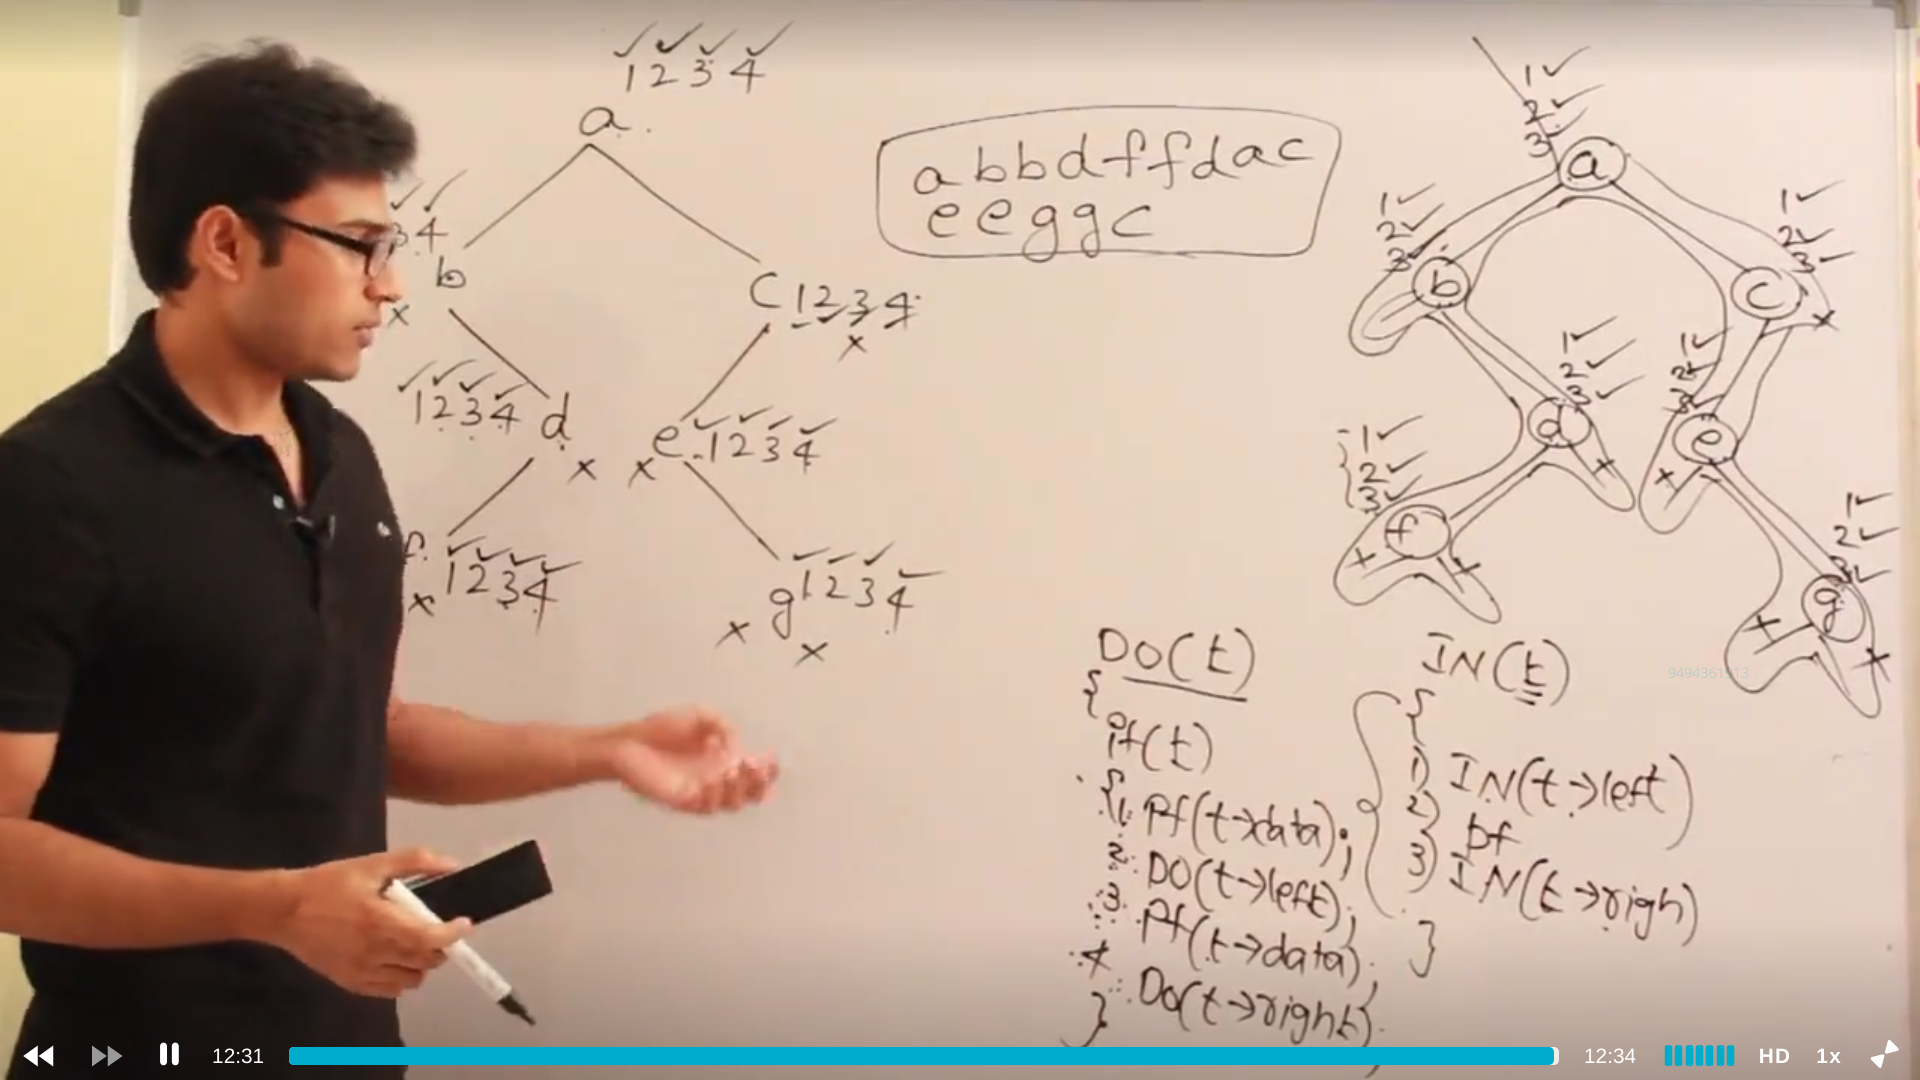 1 2 3 4
a
3 4
b
C 1 2 3 4
x
x
1 2 3 4 d
x
x e 1 2 3 4
f 1 2 3 4
x
g 1 2 3 4
x
x
a b b d f f d a c
e e g g c
1
2
3
a
1
2
3
b
1
2
3
c
x
1
2
3
d
x
1
2
3
e
x
1
2
3
f
x x
1
2
3
g
x x
DO(t)
{
if(t)
{
1. Pf(t→data);
2. DO(t→left);
3. Pf(t→data);
4. DO(t→right);
}
IN(t)
{
1) IN(t→left)
2) pf
3) IN(t→righ)
}
12:31
12:34
HD
1x